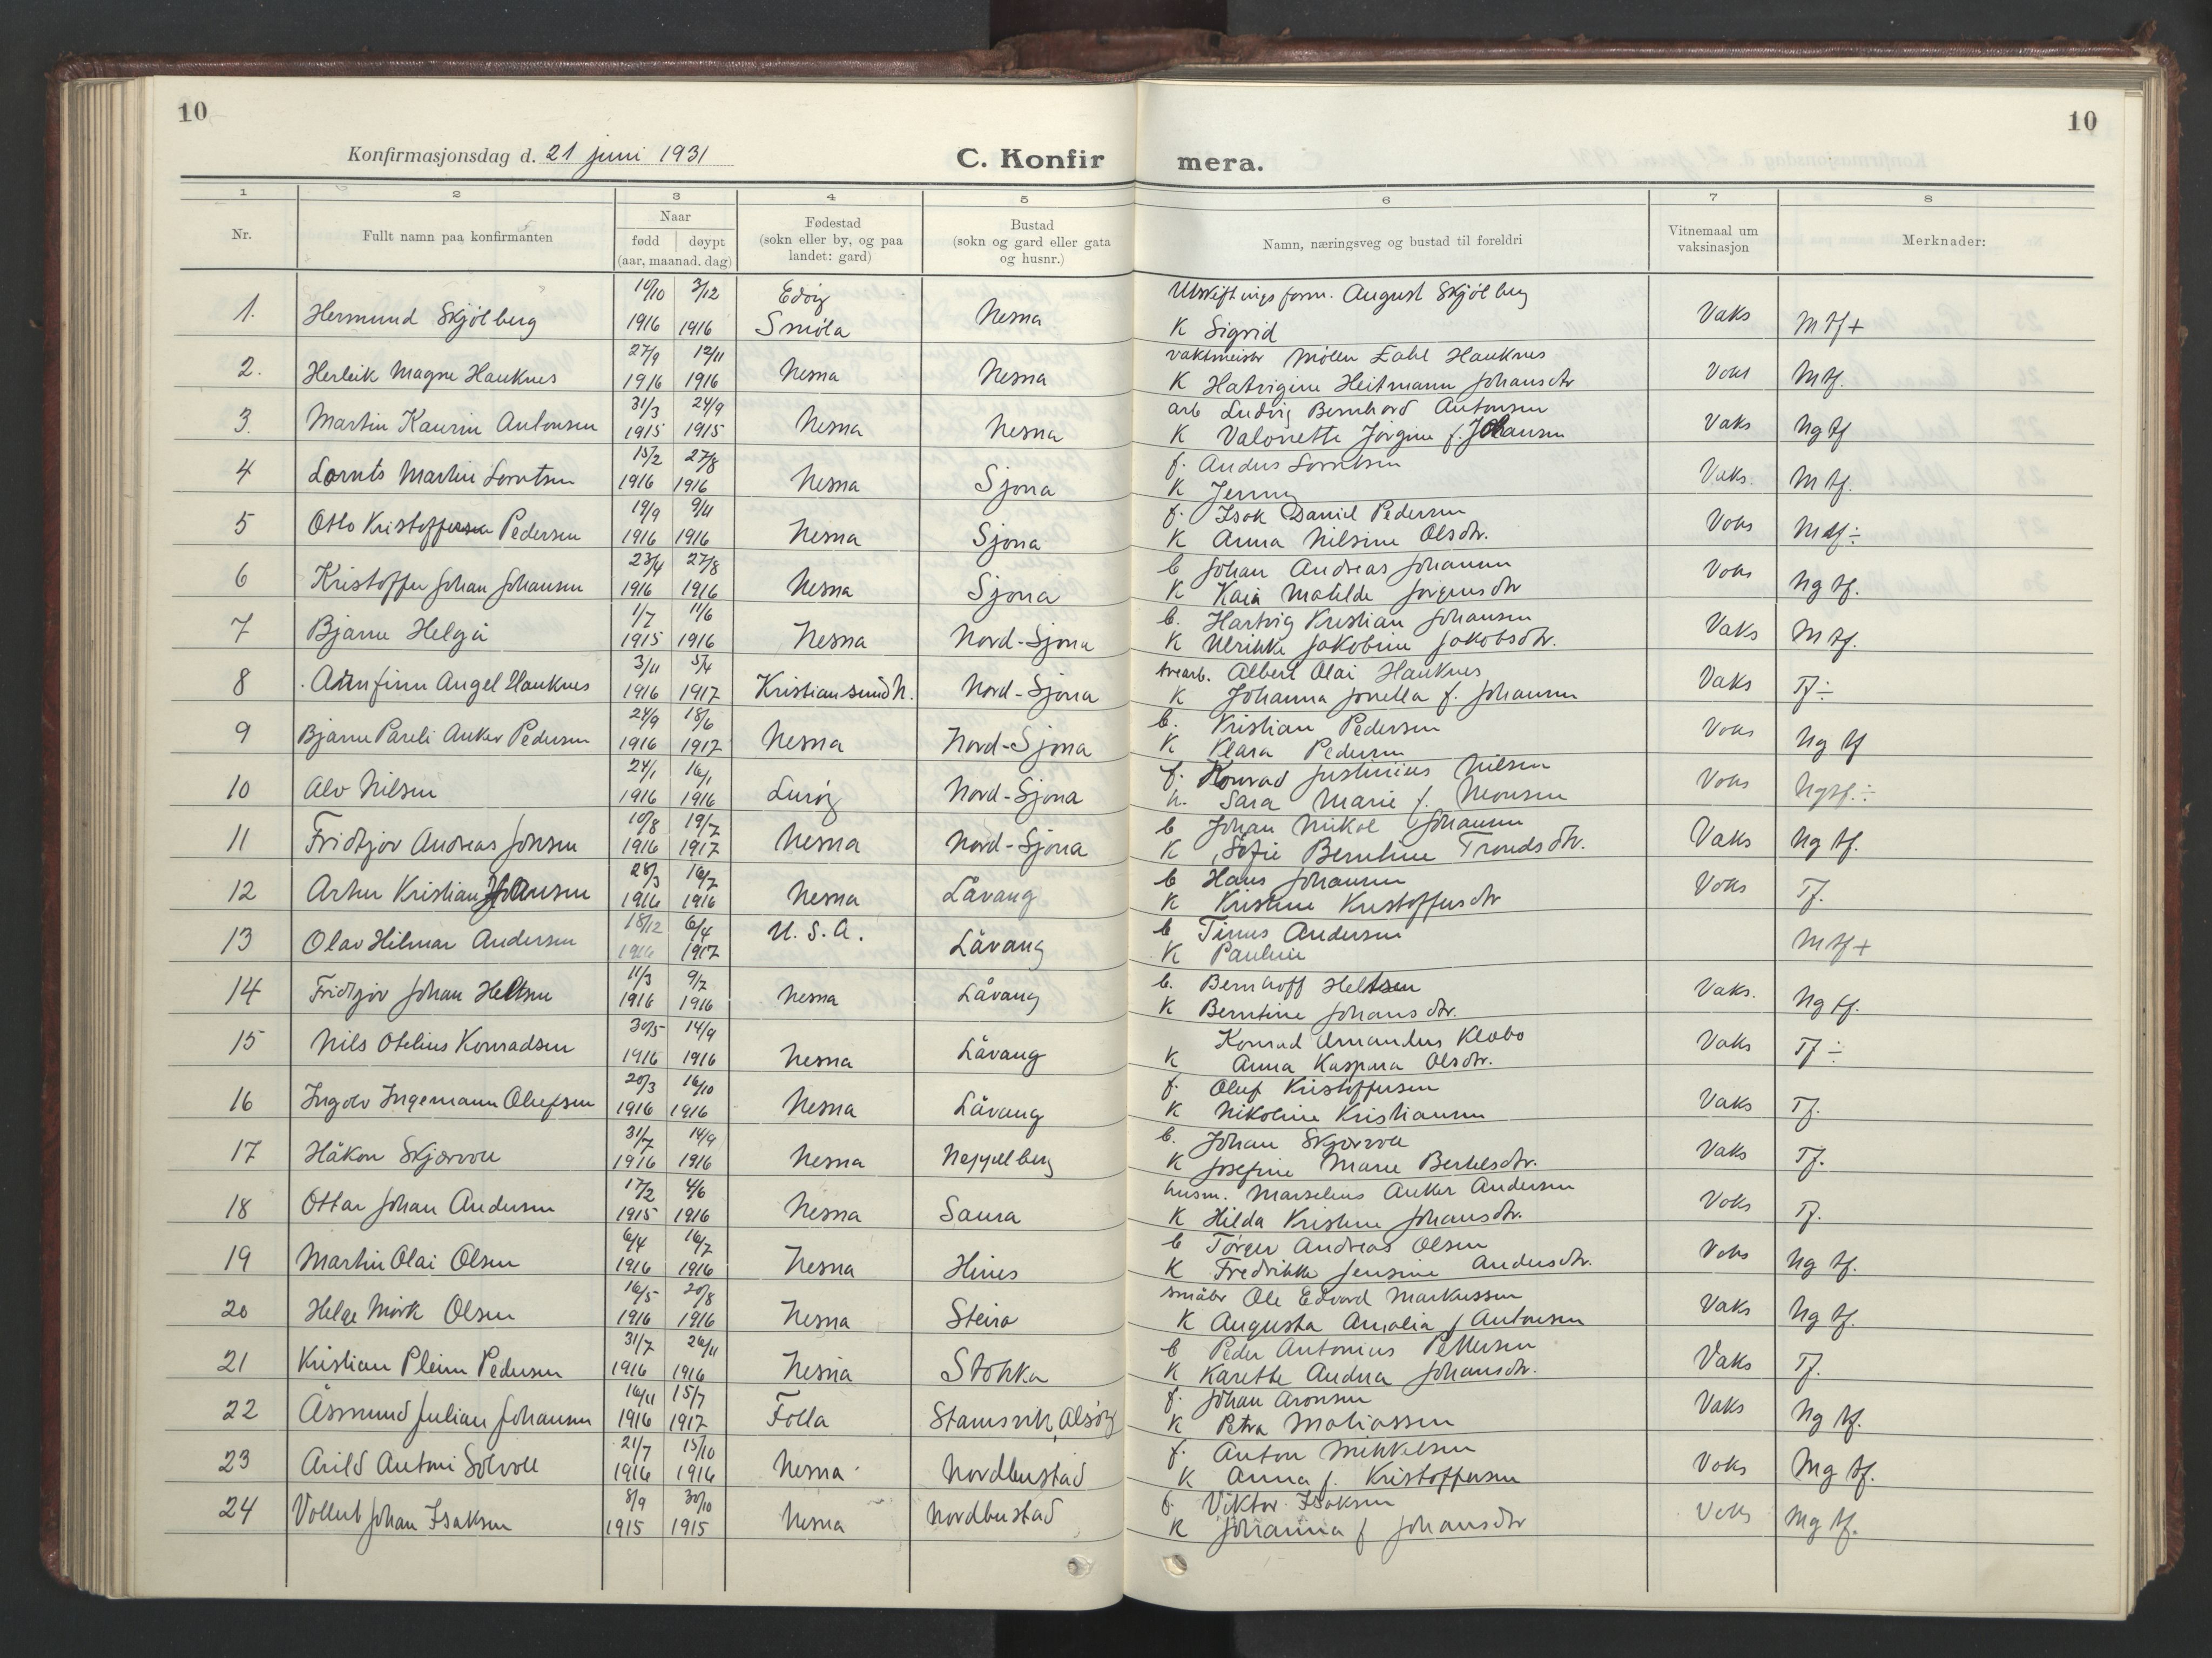 10
10
Konfirmasjonsdag d. 21 juni 1931
C. Konfir mera.
1 2 3 4 5 6 7 8
Nr. Fullt namn paa konfirmanten Naar fødd døypt (aar, maanad. dag) Fødestad (sokn eller by, og paa landet: gard) Bustad (sokn og gard eller gata og husnr.) Namn, næringsveg og bustad til foreldri Vitnemaal um vaksinasjon Merknader:
10/10 3/12 Edöy Utskiftnings form. August Skjölberg
1. Hermund Skjölberg 1916 1916 Smöla Nesna K Sigrid Vaks M tf +
27/9 12/11 vaktmeistr Möller Zahl Hauknes
2. Herleik Magne Hauknes 1916 1916 Nesna Nesna K Hatvigine Heitmann Johansdtr Vaks M tf.
31/3 24/9 arb Ludvig Bernhard Antonsen
3. Martin Kaurin Antonsen 1915 1915 Nesna Nesna K Valonette Jörgine f. Johansen Vaks Ng tf
15/2 27/8 f. Anders Lorntsen
4 Lornts Martin Lorntsen 1916 1916 Nesna Sjona K Jenny Vaks. M tf.
19/9 9/11 f. Isak Daniel Pedersen
5 Otto Kristoffersen Pedersen 1916 1916 Nesna Sjona K Anna Nilsine Olsdtr. Vaks M tf ÷
23/4 27/8 b Johan Andreas Johansen
6 Kristoffer Johan Johansen 1916 1916 Nesna Sjona K Kaia Matilde Jörgensdtr Vaks Ng tf.
1/7 11/6 b. Hartvig Kristian Johansen
7 Bjarne Helgå 1915 1916 Nesna Nord-Sjona K Ulrikke Jakobine Jakobsdtr. Vaks M tf.
3/11 5/4 trearb. Albert Olai Hauknes
8 Arnfinn Angel Hauknes 1916 1917 Kristiansund N. Nord-Sjona K Johanna Jonella f. Johansen Vaks Tf ÷
24/9 18/6 b. Kristian Pedersen
9 Bjarne Pareli Anker Pedersen 1916 1917 Nesna Nord-Sjona K Klara Pedersen Vaks Ng tf
24/1 16/1 f. Konrad Justinius Nilsen
10 Alv Nilsen 1916 1916 Luröy Nord-Sjona K. Sara Marie f. Monsen Vaks Ng tf. ÷
10/8 19/7 b Johan Nikol Johansen
11 Fridtjov Andreas Jonsen 1916 1917 Nesna Nord-Sjona K Sofie Berntine Trondsdtr. Vaks Ng tf.
28/3 16/7 b Hans Johansen
12 Artur Kristian Johansen 1916 1916 Nesna Låvang K Kristine Kristoffersdtr Vaks Tf.
18/12 6/4 U.S.A. b Tinus Andersen
13 Olav Hilmar Andersen 1916 1917 Låvang K Pauline M tf +
11/3 9/7 b. Bernhoff Heltsen
14 Fridtjov Johan Heltsen 1916 1916 Nesna Låvang K Berntine Johansdtr. Vaks. Ng tf.
30/5 14/9 Konrad Amandus Klobo
15 Nils Otelius Konradsen 1916 1916 Nesna Låvang K Anna Kaspara Olsdtr. Vaks Tf ÷
20/3 16/10 f. Oluf Kristoffersen
16 Ingolv Ingemann Olufsen 1916 1916 Nesna Låvang K Nikoline Kristiansen Vaks Tf.
31/7 14/9 b. Johan Skjærvoll
17 Håkon Skjærvoll 1916 1916 Nesna Neppelberg K Josefine Marie Bertelsdtr. Vaks Tf.
17/2 4/6 husm. Marselius Anker Andersen
18 Ottar Johan Andersen 1915 1916 Nesna Saura K Hilda Kristine Johansdtr. Vaks Tf.
6/4 16/7 b Törger Andreas Olsen
19 Martin Olai Olsen 1916 1916 Nesna Hines K Fredrikke Jensine Andersdtr. Vaks Ng tf.
16/5 20/8 småbr Ole Edvard Markussen
20 Helge Mörk Olsen 1916 1916 Nesna Steiro K Augusta Amalia f Antonsen Vaks Ng tf.
31/7 26/11 b Peder Antonius Pettersen
21 Kristian Pleim Pedersen 1916 1916 Nesna Stokka K Karette Andrea Johansdtr. Vaks Tf.
16/11 15/7 f. Johan Aronsen
22 Åsmund Julian Johansen 1916 1917 Folla Stamsvik, Alsöy K Petra Matiassen Vaks Ng tf.
21/7 15/10 f. Anton Mikkelsen
23 Arild Antoni Solvoll 1916 1916 Nesna Nordbustad K Anna f. Kristoffersen Vaks Mg tf.
8/9 30/10 f. Viktor Isaksen
24 Vollert Johan Isaksen 1915 1915 Nesna Nordbustad K Johanna f Johansdtr Vaks Mg tf.